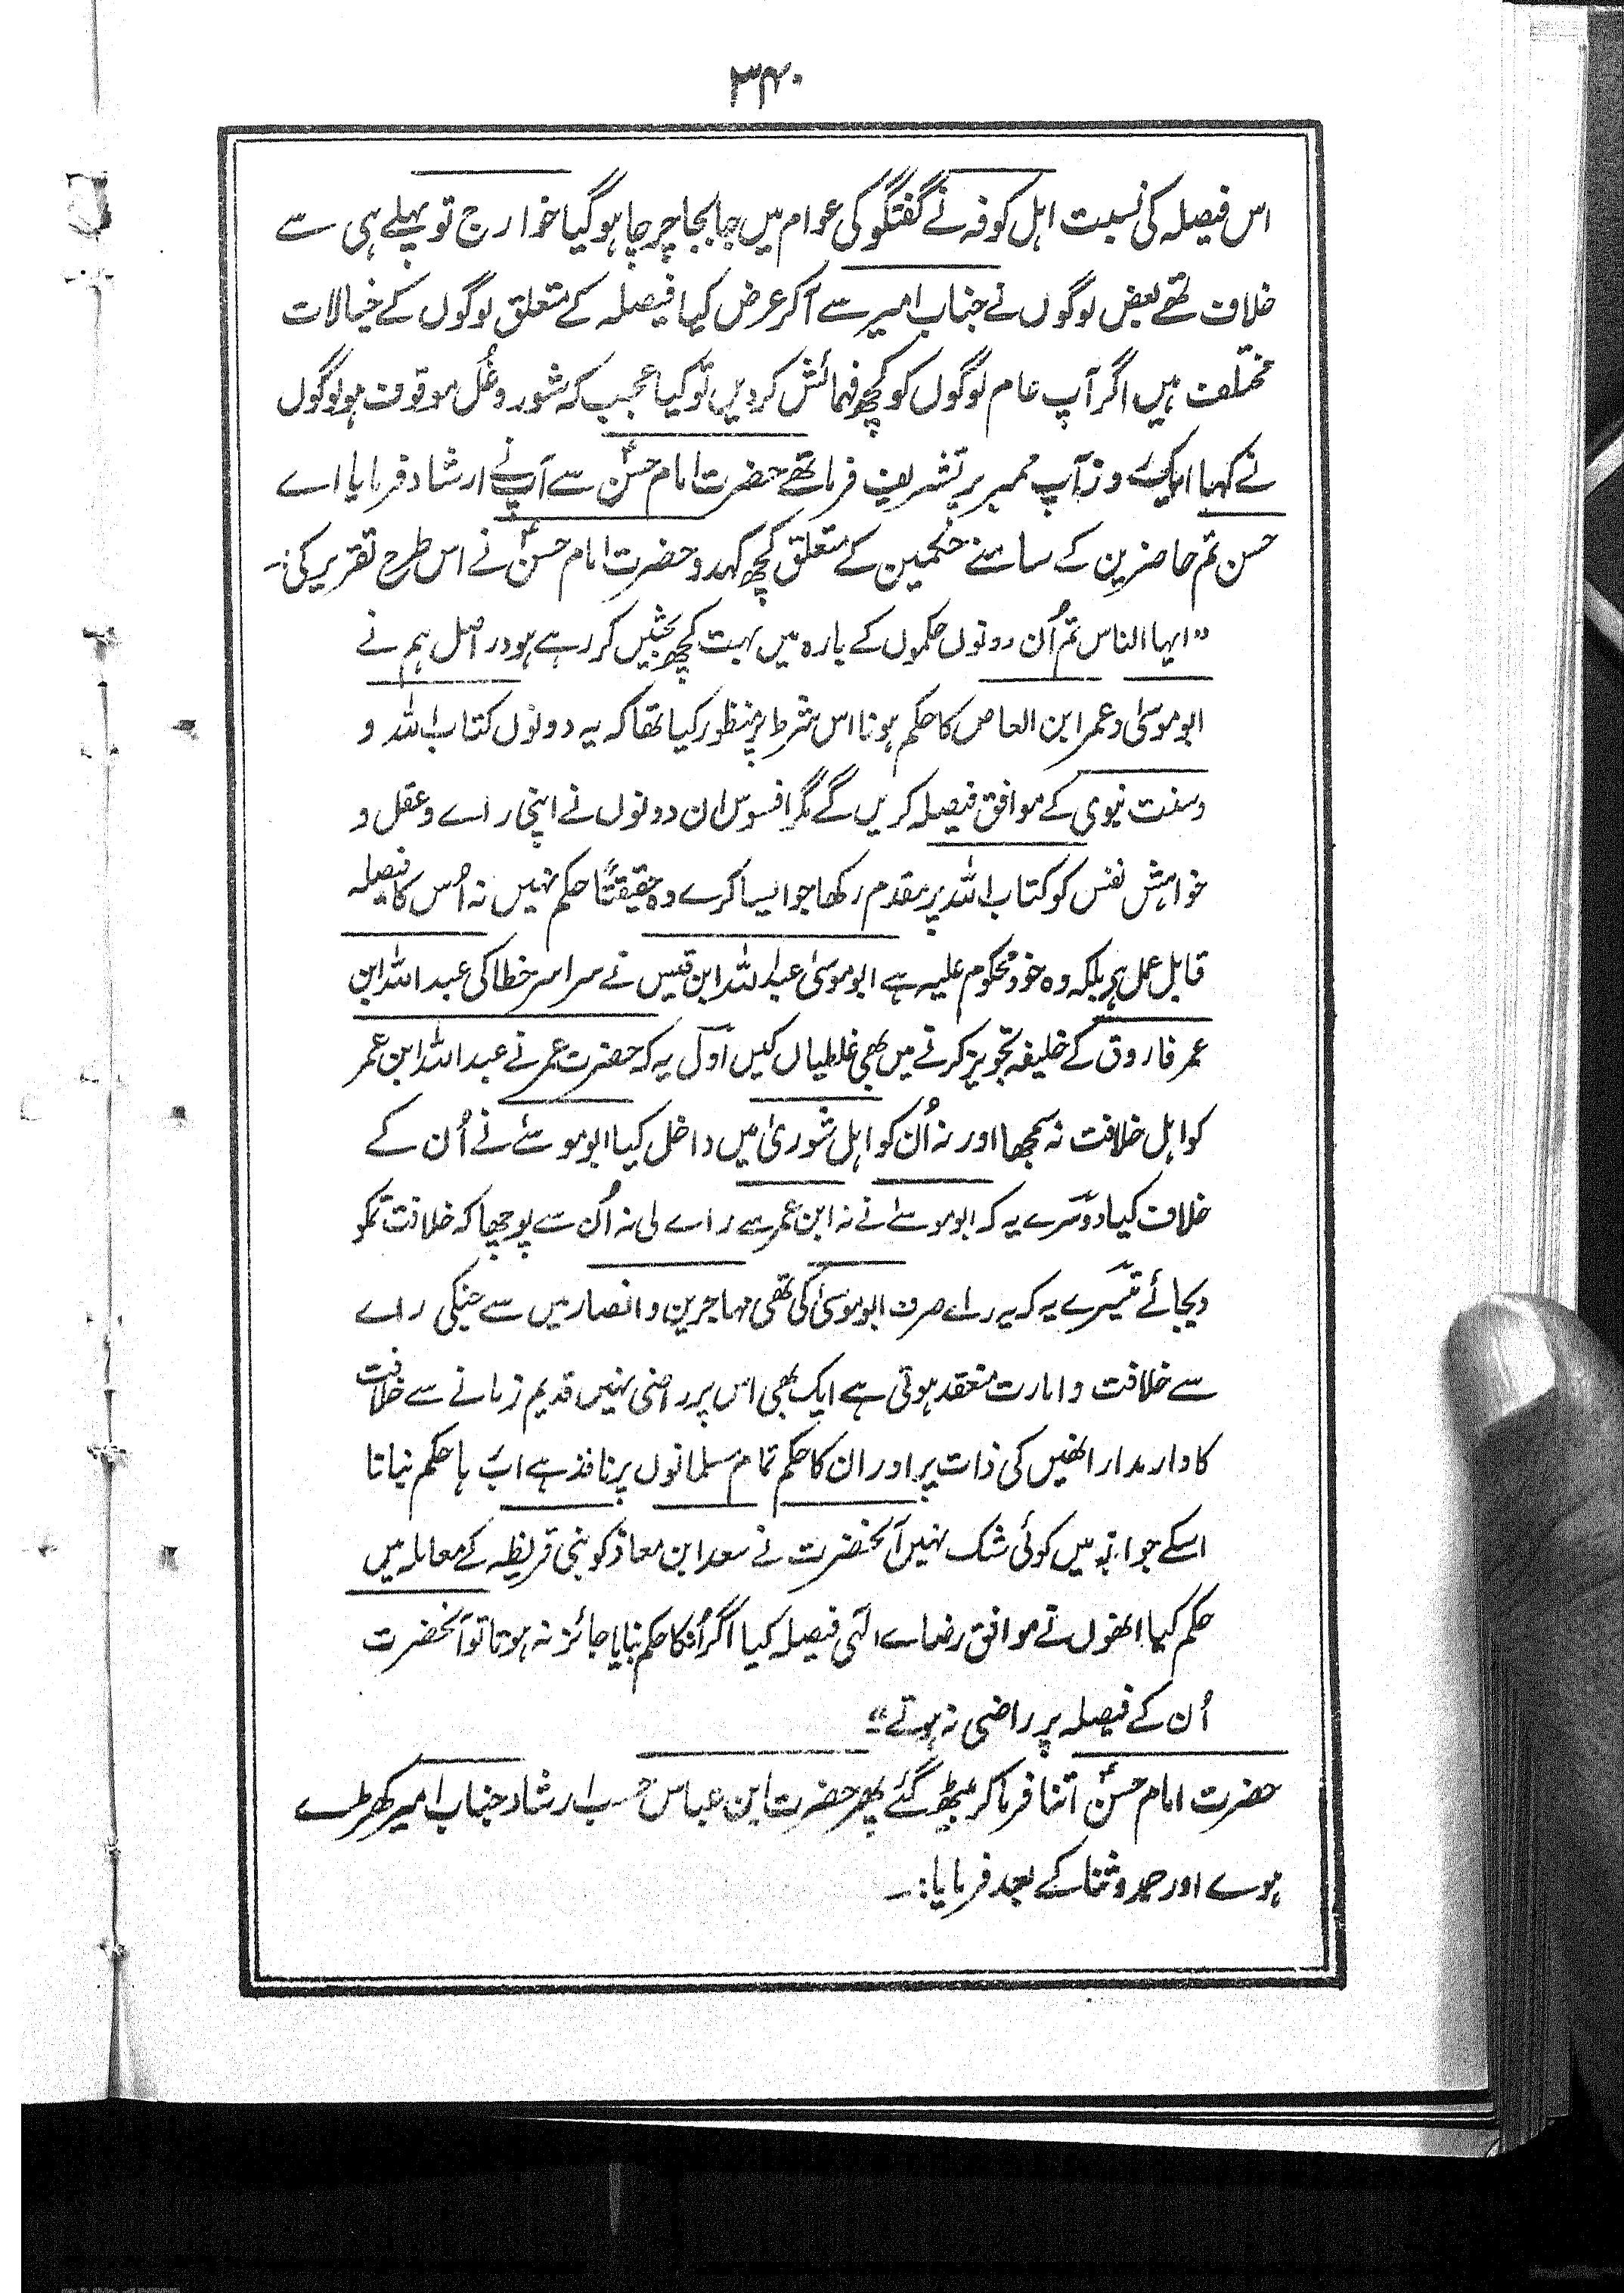 ۳۴۰
اس فیصلہ کی نسبت اہل کوفہ نے گفتگو کی عوام میں جابجا چرچا ہوگیا خوارج تو پہلے ہی سے
خلاف تھے بعض لوگوں نے جناب امیر سے آکر عرض کیا فیصلہ کے متعلق لوگوں کے خیالات
مختلف ہیں اگر آپ عام لوگوں کو کچھ فہمائش کردیں تو کیا عجب کہ شور و غُل موقوف ہو لوگوں
نے کہا ایک روز آپ ممبر پر تشریف فرما تھے حضرت امام حسنؑ سے آپ نے ارشاد فرمایا اے
حسن تم حاضرین کے سامنے حکمین کے متعلق کچھ کہدو حضرت امام حسنؑ نے اس طرح تقریر کی:۔
"ایہا الناس تم اُن دونوں حکموں کے بارہ میں بہت کچھ بحثیں کر رہے ہو دراصل ہم نے
ابو موسیٰ و عمر ابن العاص کا حکم ہونا اس شرط پر منظور کیا تھا کہ یہ دونوں کتاب اللہ و
وسنت نبوی کے موافق فیصلہ کریں گے مگر افسوس ان دونوں نے اپنی راے و عقل و
خواہش نفس کو کتاب اللہ پر مقدم رکھا جو ایسا کرے وہ حقیقتاً حکم نہیں نہ اُس کا فیصلہ
قابل عمل ہے بلکہ وہ خود محکوم علیہ ہے ابو موسیٰ عبداللہ ابن قیس نے سراسر خطا کی عبداللہ ابن
عمر فاروق کے خلیفہ تجویز کرنے میں بھی غلطیاں کیں اوّل یہ کہ حضرت عمر نے عبداللہ ابن عمر
کو اہل خلافت نہ سمجھا اور نہ اُن کو اہل شوریٰ میں داخل کیا ابو موسےٰ نے اُن کے
خلاف کیا دوسرے یہ کہ ابو موسےٰ نے نہ ابن عمر سے راے لی نہ اُن سے پوچھا کہ خلافت تمکو
دیجائے تیسرے یہ کہ یہ راے صرف ابو موسیٰ کی تھی مہاجرین و انصار میں سے جنکی راے
سے خلافت و امارت منعقد ہوتی ہے ایک بھی اس پر راضی نہیں قدیم زمانے سے خلافت
کا دار مدار انھیں کی ذات پر اور ان کا حکم تمام مسلمانوں پر نافذ ہے اب رہا حکم بنانا
اسکے جواز میں کوئی شک نہیں آنحضرت نے سعد ابن معاذ کو بنی قریظہ کے معاملہ میں
حکم کیا انھوں نے موافق رضاے الٰہی فیصلہ کیا اگر اُنکا حکم بنایا جائز نہ ہوتا تو آنحضرت
اُن کے فیصلہ پر راضی نہ ہوتے"
حضرت امام حسنؑ اتنا فرما کر بیٹھ گئے پھر حضرت ابن عباس حسب ارشاد جناب امیر کھڑے
ہوے اور حمد و ثنا کے بعد فرمایا:۔